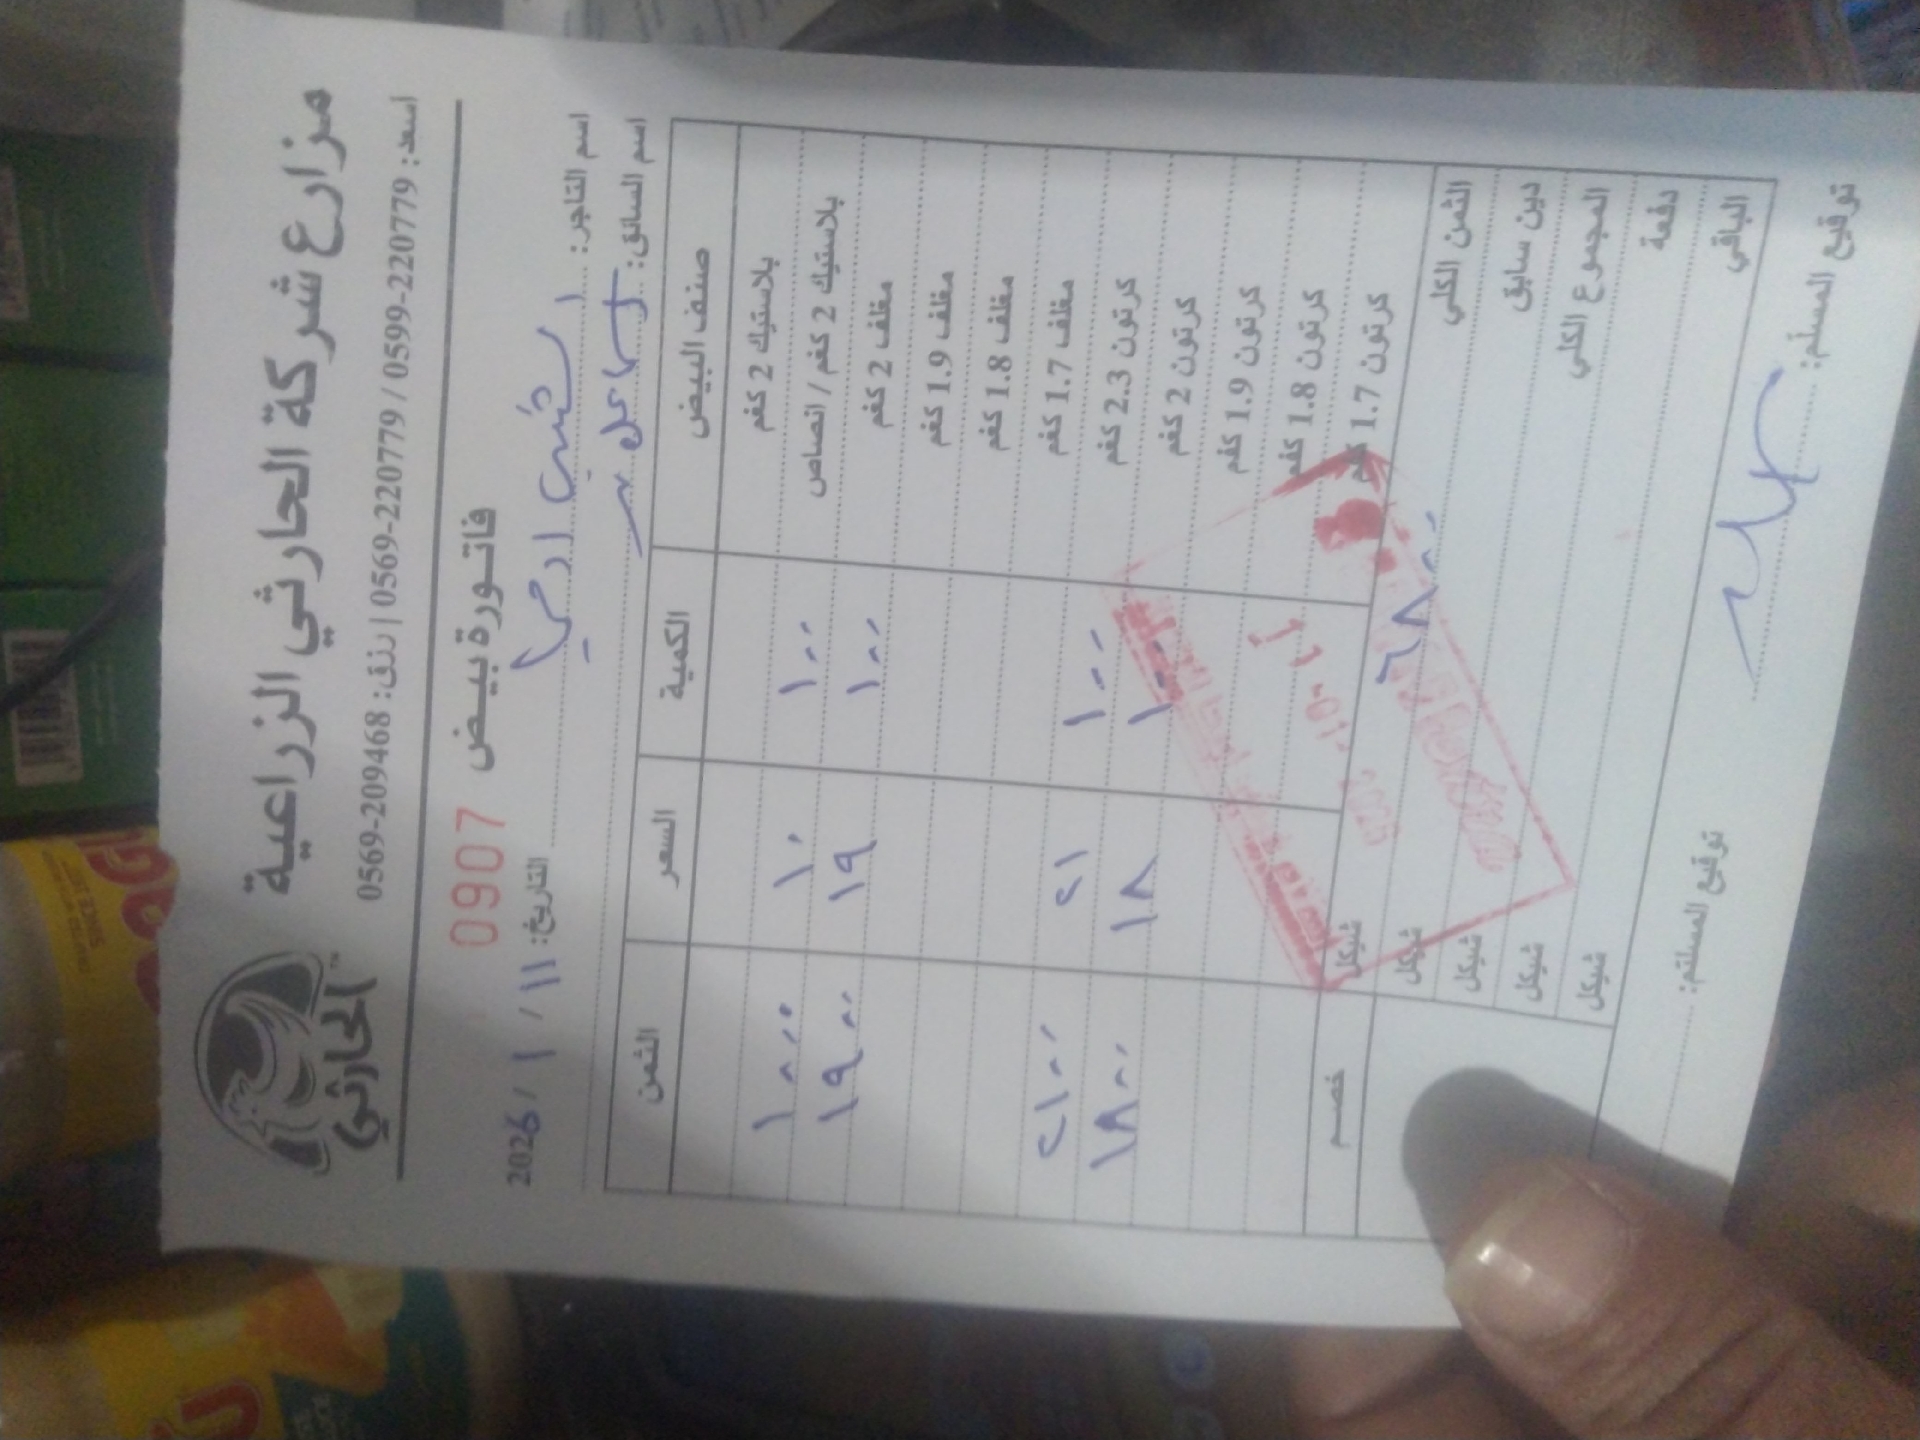 مزارع شركة الحارثي الزراعية
الحارثي
اسعد: 0599-220779 / 0569-220779 | رنق: 0569-209468
فاتورة بيض 0907
اسم التاجر:
التاريخ: ١١ / ١ / 2026
اسم السائق:
صنف البيض الكمية السعر الثمن
بلاستيك 2 كغم
بلاستيك 2 كغم / انصاص ١٠٠ ١٠ ١٠٠٠
مغلف 2 كغم ١٠٠ ١٩ ١٩٠٠
مغلف 1.9 كغم
مغلف 1.8 كغم
مغلف 1.7 كغم
كرتون 2.3 كغم ١٠٠ ٢١ ٢١٠٠
كرتون 2 كغم ١٠٠ ١٨ ١٨٠٠
كرتون 1.9 كغم
كرتون 1.8 كغم
كرتون 1.7 كغم
الثمن الكلي ٦٨٠٠ شيكل خصم
دين سابق شيكل
المجموع الكلي شيكل
دفعة شيكل
الباقي شيكل
توقيع المسلم: توقيع المستلم: